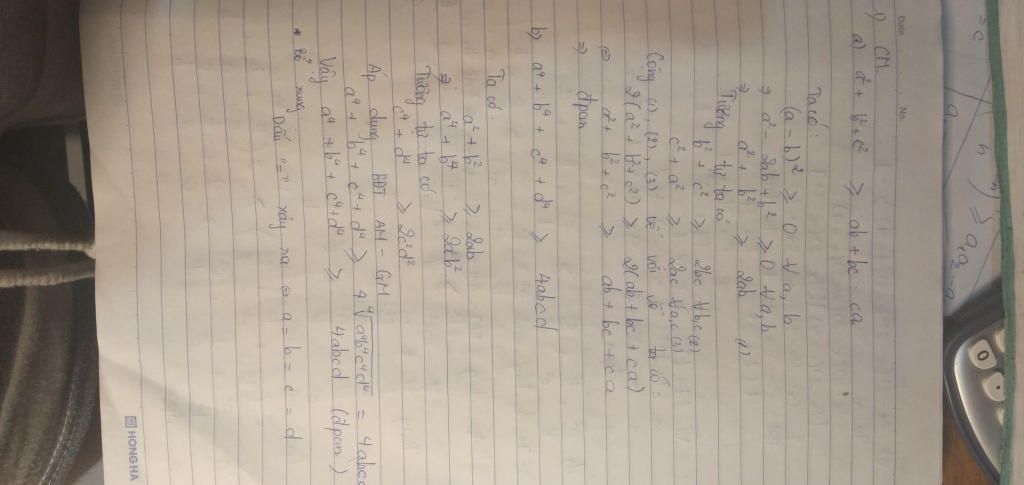 Date. No.
1) CM
a) a² + b² + c² ≥ ab + bc - ca
Ta có:
(a - b)² ≥ 0 ∀ a, b
⇒ a² - 2ab + b² ≥ 0 ∀ a, b
⇒ a² + b² ≥ 2ab (1)
Tương tự ta có
b² + c² ≥ 2bc ∀ b, c (2)
c² + a² ≥ 2ac ∀ a, c (3)
Cộng (1), (2), (3) vế với vế ta có:
2(a² + b² + c²) ≥ 2(ab + bc + ca)
⇔ a² + b² + c² ≥ ab + bc + ca
⇒ đpcm
b) a⁴ + b⁴ + c⁴ + d⁴ ≥ 4abcd
Ta có
a² + b² ≥ 2ab
⇒ a⁴ + b⁴ ≥ 2a²b²
Tương tự ta có:
c⁴ + d⁴ ≥ 2c²d²
Áp dụng BĐT AM - GM
a⁴ + b⁴ + c⁴ + d⁴ ≥ 4 ⁴√a⁴b⁴c⁴d⁴ = 4abcd
Vậy a⁴ + b⁴ + c⁴ + d⁴ ≥ 4abcd (đpcm)
* Bổ sung:
Dấu "=" xảy ra ⇔ a = b = c = d
HONG HA